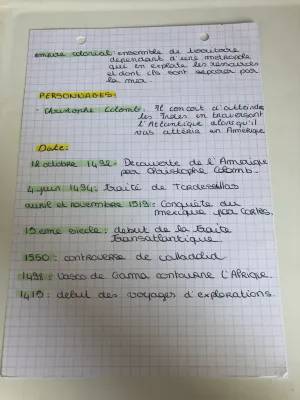 empire colonial: ensemble de territoire
dépendant d'une métropole
qui en exploite les ressources
et dont ils sont séparer par
la mer.
PERSONNAGES:
- Christophe Colomb: Il d'atteindre
les Indes en traversant
l'Atlantique alors qu'il
vas attérir en Amérique
Date:
12 octobre 1492: Découverte de l'Amérique
par Christophe Colomb.
4 juin 1494: Traité de Tordesillas
avril et novembre 1519: Conquête du
mexique par Cortès.
15 eme siècle: debut de la traite
Transatlantique.
1550: controverse de valladolid
1498: Vasco de Gama contourne l'Afrique.
1415: debut des voyages d'explorations.